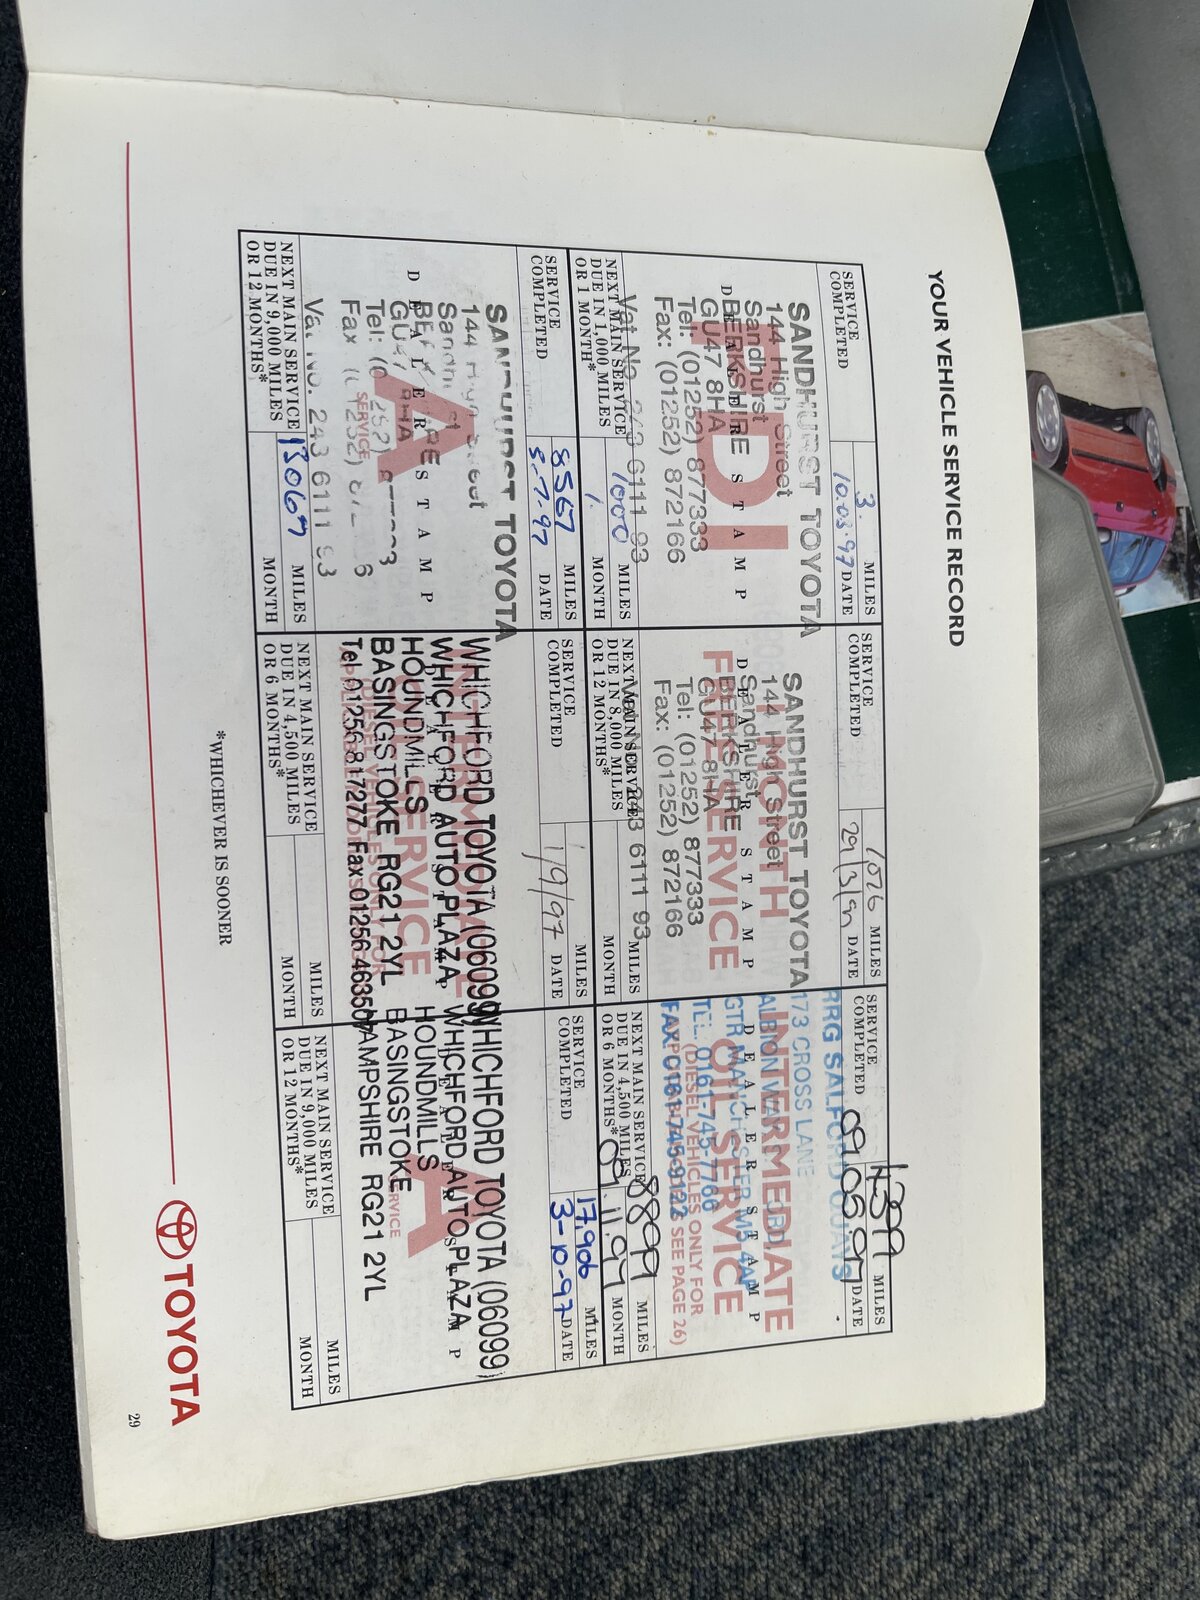 YOUR VEHICLE SERVICE RECORD
SERVICE COMPLETED
3. MILES
10.03.97 DATE
PDI
SANDHURST TOYOTA
144 High Street
Sandhurst
BERKSHIRE
GU47 8HA
Tel: (01252) 877333
Fax: (01252) 872166
Vat No. 243 6111 93
DEALER STAMP
NEXT MAIN SERVICE
DUE IN 1,000 MILES
OR 1 MONTH*
1000 MILES
1. MONTH
SERVICE COMPLETED
1026 MILES
29/3/97 DATE
1 MONTH
FREE SERVICE
SANDHURST TOYOTA
144 High Street
Sandhurst
BERKSHIRE
GU47 8HA
Tel: (01252) 877333
Fax: (01252) 872166
Vat No. 243 6111 93
DEALER STAMP
NEXT MAIN SERVICE
DUE IN 8,000 MILES
OR 12 MONTHS*
MILES
MONTH
SERVICE COMPLETED
4399 MILES
09.05.97 DATE
INTERMEDIATE
OIL SERVICE
(DIESEL VEHICLES ONLY FOR
SEE PAGE 26)
RRG SALFORD QUAYS
173 CROSS LANE
ALBION WAY
GTR MANCHESTER M5 4AP
TEL: 0161-745-7766
FAX: 0161-745-9122
DEALER STAMP
NEXT MAIN SERVICE
DUE IN 4,500 MILES
OR 6 MONTHS*
8899 MILES
09.11.97 MONTH
SERVICE COMPLETED
8567 MILES
8-7-97 DATE
A
SERVICE
SANDHURST TOYOTA
144 High Street
Sandhurst
GU47 8HA
Vat No. 243 6111 93
DEALER STAMP
NEXT MAIN SERVICE
DUE IN 9,000 MILES
OR 12 MONTHS*
13067 MILES
MONTH
SERVICE COMPLETED
MILES
1/9/97 DATE
INTERMEDIATE
SERVICE
WHICHFORD TOYOTA (06099)
WHICHFORD AUTO PLAZA
HOUNDMILLS
BASINGSTOKE RG21 2YL
Tel 01256 817277 Fax 01256 463507
DEALER STAMP
NEXT MAIN SERVICE
DUE IN 4,500 MILES
OR 6 MONTHS*
MILES
MONTH
SERVICE COMPLETED
17,906 MILES
3-10-97 DATE
A
SERVICE
WHICHFORD TOYOTA (06099)
WHICHFORD AUTO PLAZA
HOUNDMILLS
BASINGSTOKE
HAMPSHIRE RG21 2YL
DEALER STAMP
NEXT MAIN SERVICE
DUE IN 9,000 MILES
OR 12 MONTHS*
MILES
MONTH
*WHICHEVER IS SOONER
TOYOTA
29